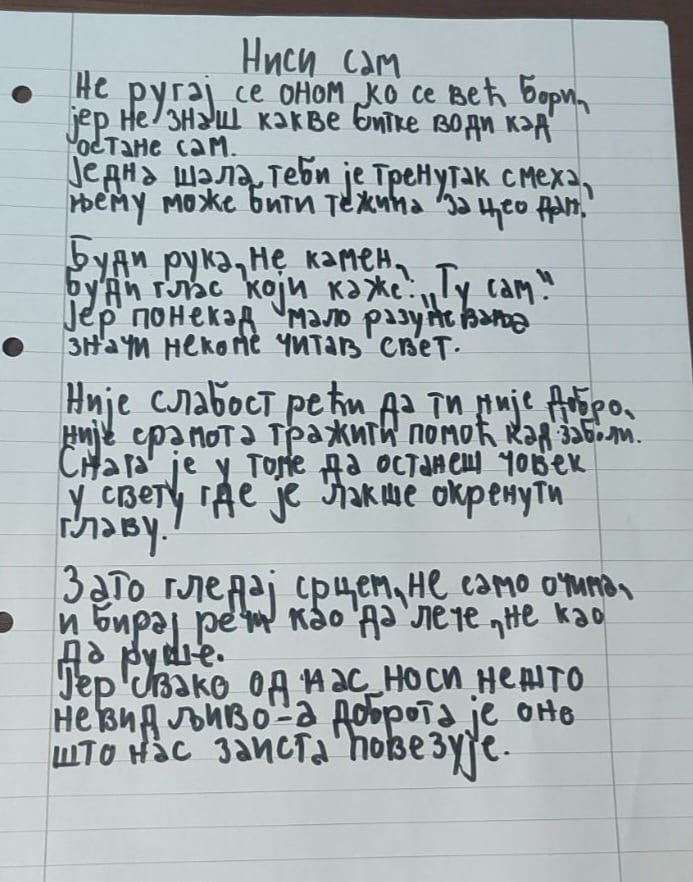 Ниси сам
Не ругај се оном ко се већ бори,
јер не знаш какве битке води кад
остане сам.
Једна шала теби је тренутак смеха,
њему може бити тежина за цео дан.
Буди рука, не камен,
буди глас који каже: „Ту сам“.
Јер понекад мало разумевања
значи некоме читав свет.
Није слабост рећи да ти није добро,
није срамота тражити помоћ кад заболи.
Снага је у томе да останеш човек
у свету где је лакше окренути
главу.
Зато гледај срцем, не само очима,
и бирај речи као да лече, не као
да руше.
Јер свако од нас носи нешто
невидљиво - а доброта је оно
што нас заиста повезује.